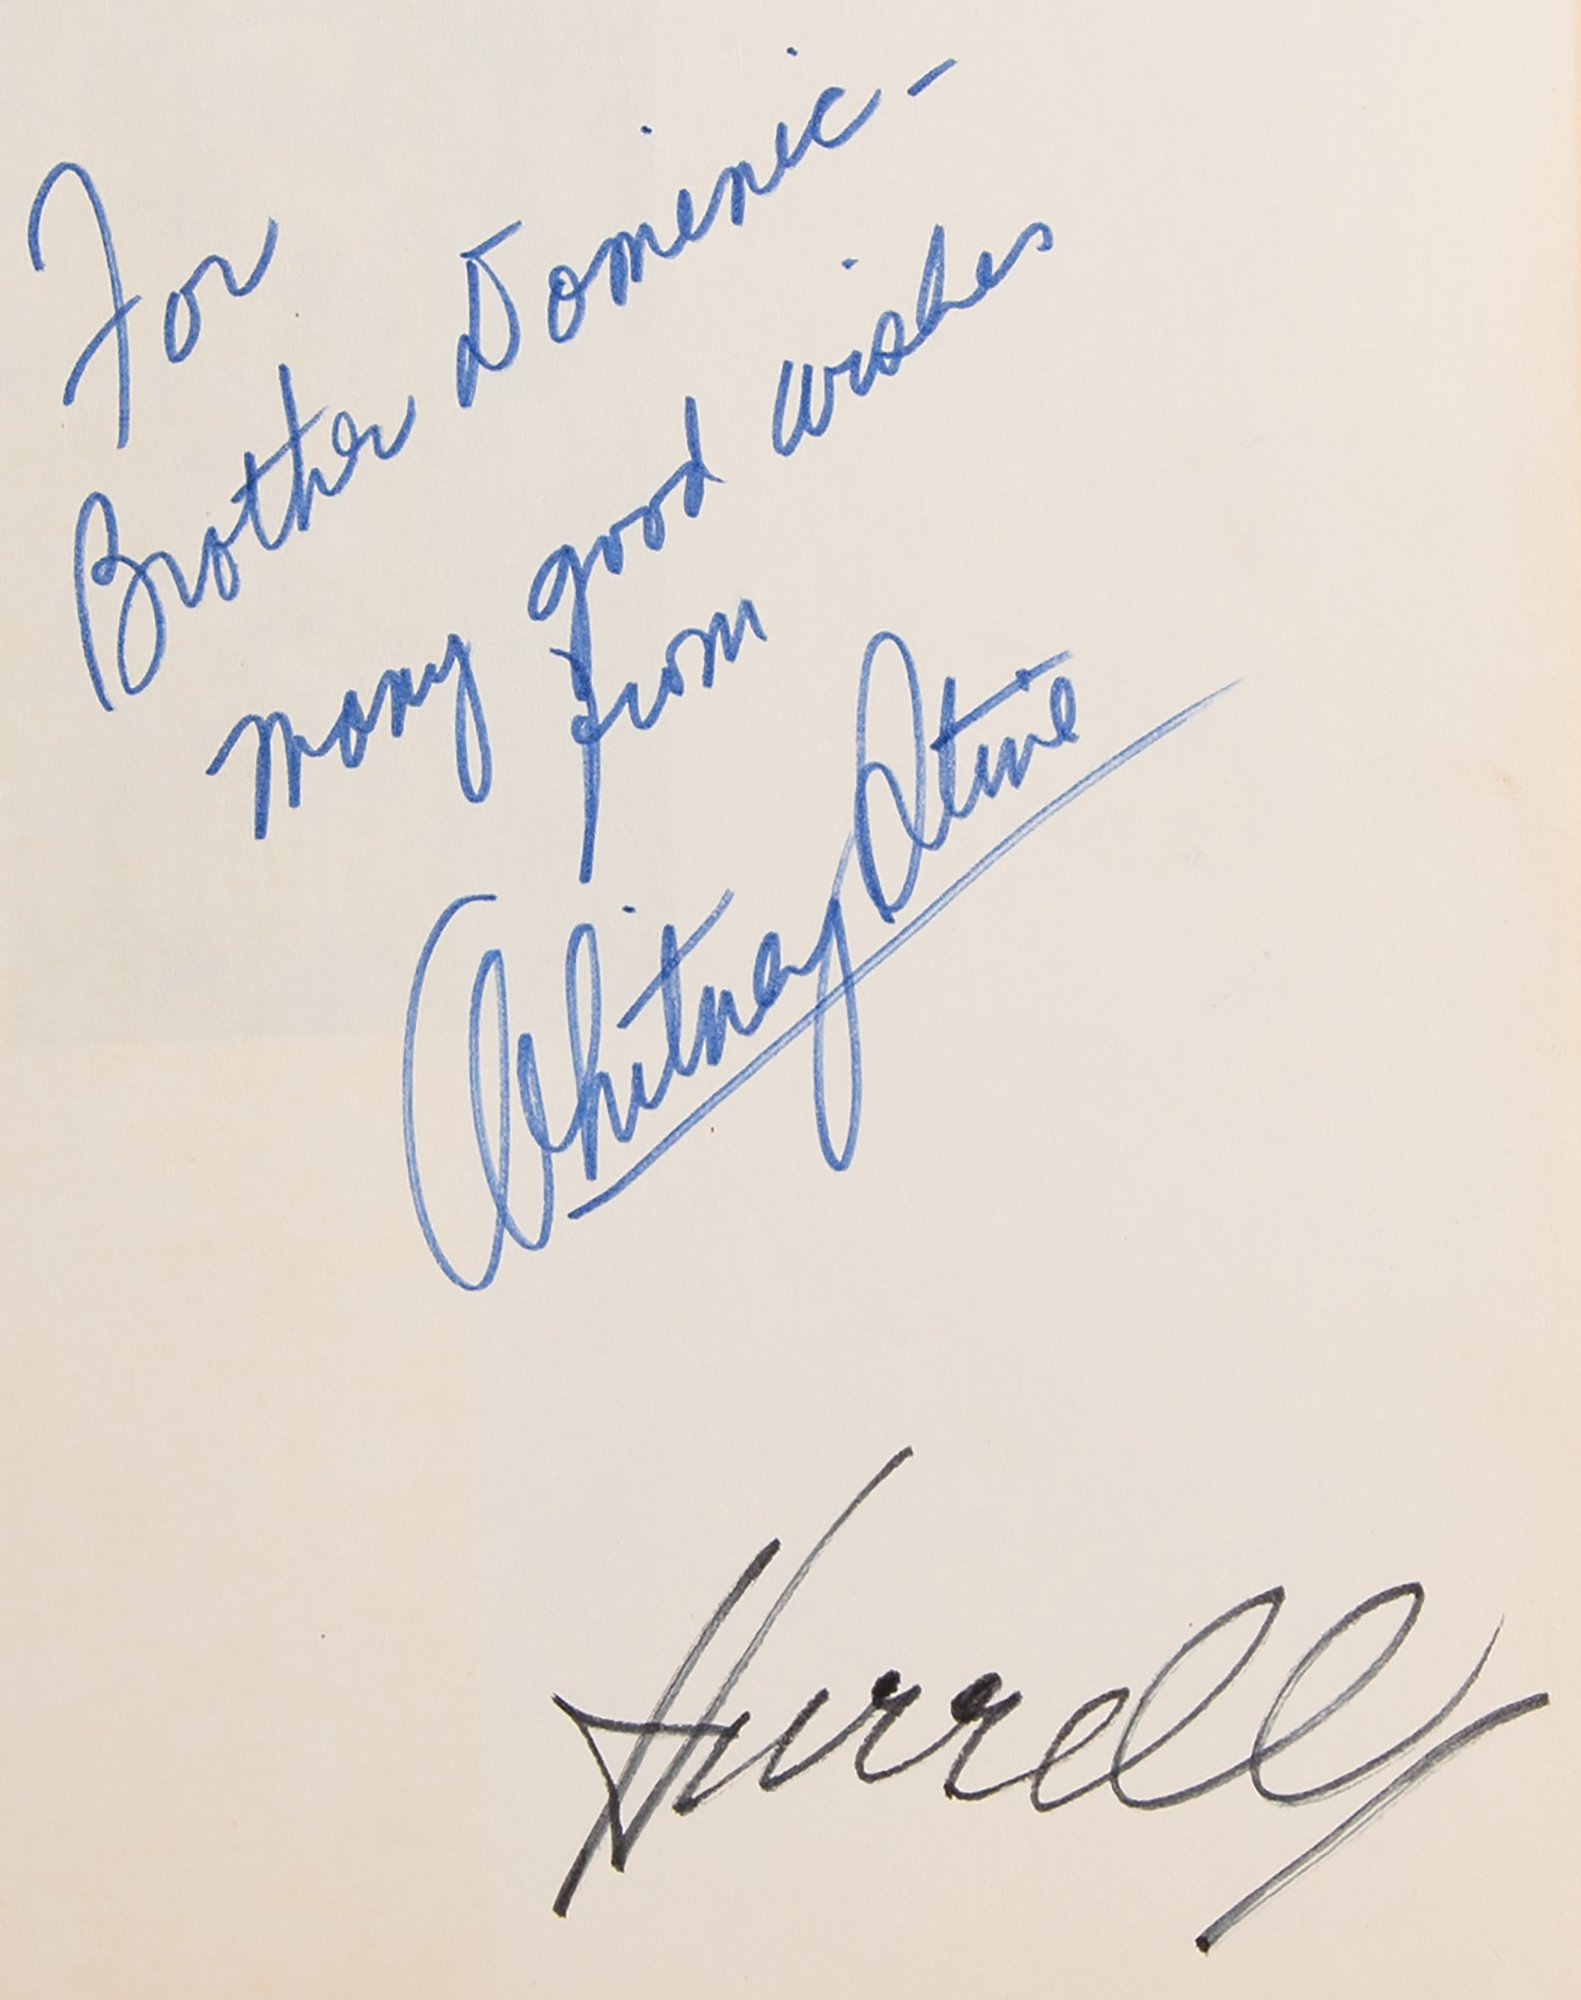 For
Brother Domenic -
many good wishes
from
Whitney Stine
Hurrell